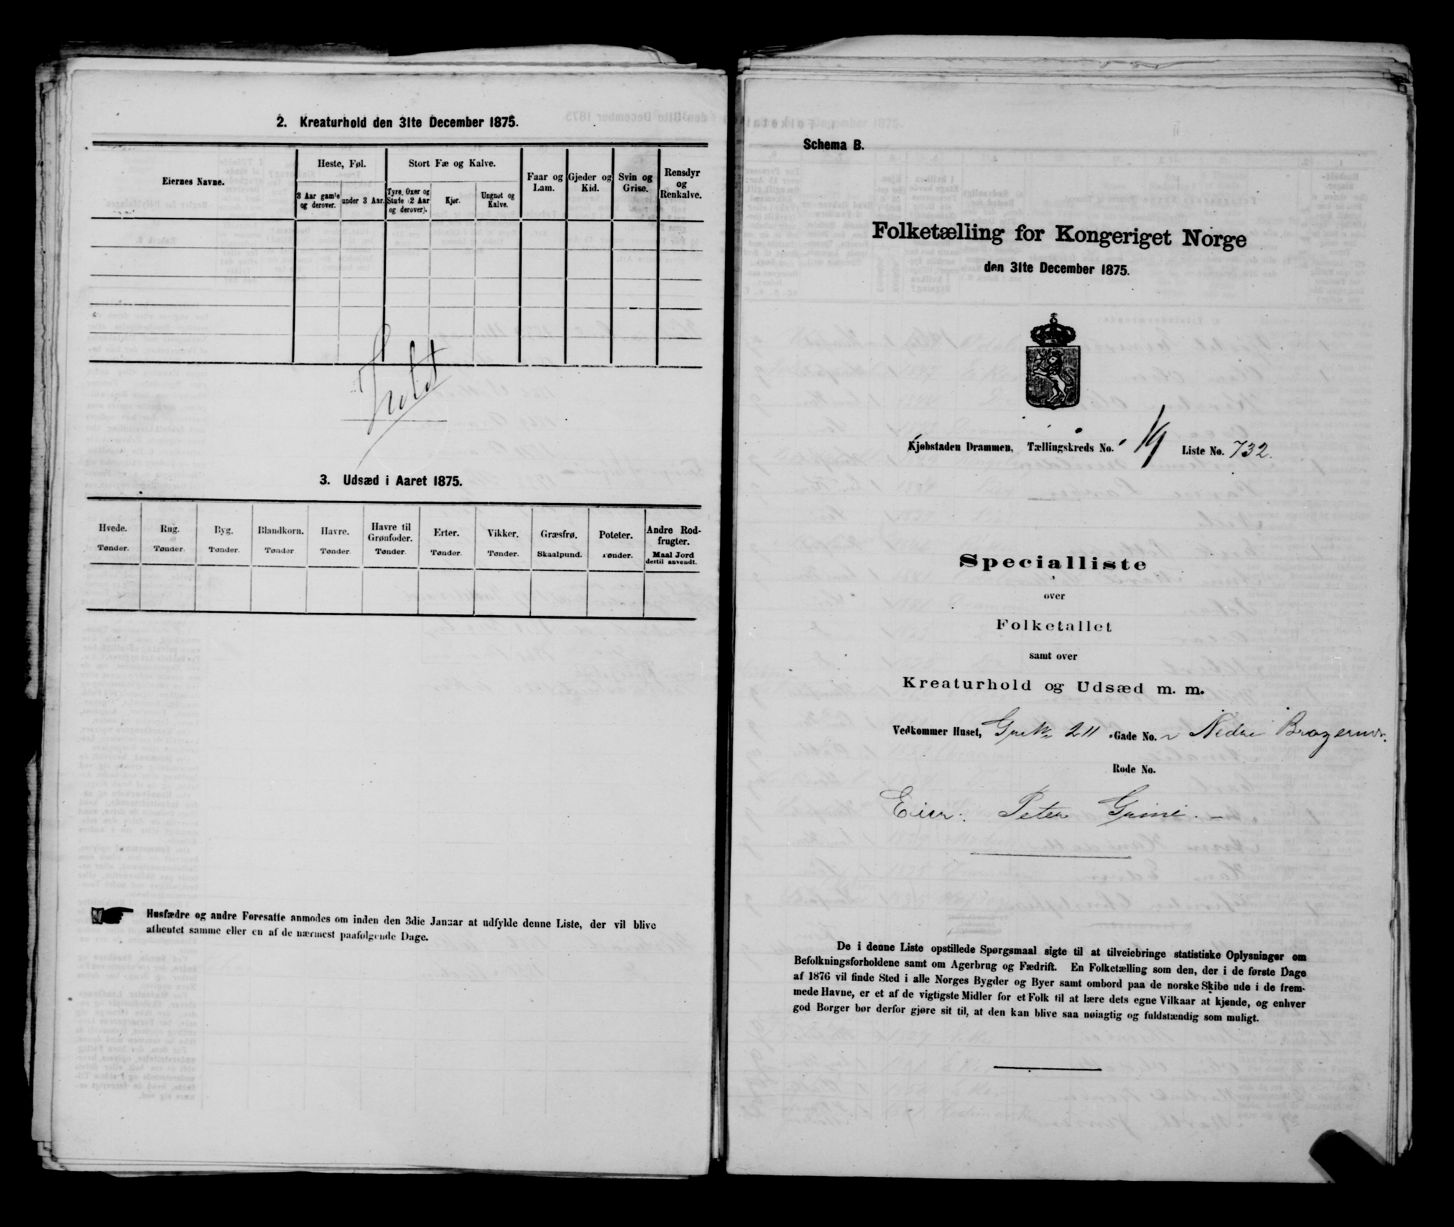 2. Kreaturhold den 31te December 1875.
Eiernes Navne.
Heste, Føl.
3 Aar gamle og derover.
under 3 Aar.
Stort Fæ og Kalve.
Tyre, Oxer og Stude (2 Aar og derover).
Kjør.
Ungnøt og Kalve.
Faar og Lam.
Gjeder og Kid.
Svin og Grise.
Rensdyr og Renkalve.
3. Udsæd i Aaret 1875.
Hvede. Rug. Byg. Blandkorn. Havre. Havre til Grønfoder. Erter. Vikker. Græsfrø. Poteter. Andre Rodfrugter.
Tønder. Tønder. Tønder. Tønder Tønder. Tønder. Tønder. Tønder. Skaalpund. Tønder. Maal Jord dertil anvendt.
Husfædre og andre Foresatte anmodes om inden den 3die Januar at udfylde denne Liste, der vil blive
afhentet samme eller en af de nærmest paafølgende Dage.
Schema B.
Folketælling for Kongeriget Norge
den 31te December 1875.
Kjøbstaden Drammen, Tællingskreds No. 19 Liste No. 732.
Specialliste
over
Folketallet
samt over
Kreaturhold og Udsæd m. m.
Vedkommer Huset, 211 Gade No. Nedre
Rode No.
Eier: Peter
De i denne Liste opstillede Spørgsmaal sigte til at tilveiebringe statistiske Oplysninger om
Befolkningsforholdene samt om Agerbrug og Fædrift. En Folketælling som den, der i de første Dage
af 1876 vil finde Sted i alle Norges Bygder og Byer samt ombord paa de norske Skibe ude i de frem-
mede Havne, er et af de vigtigste Midler for et Folk til at lære dets egne Vilkaar at kjende, og enhver
god Borger bør derfor gjøre sit til, at den kan blive saa nøiagtig og fuldstændig som muligt.